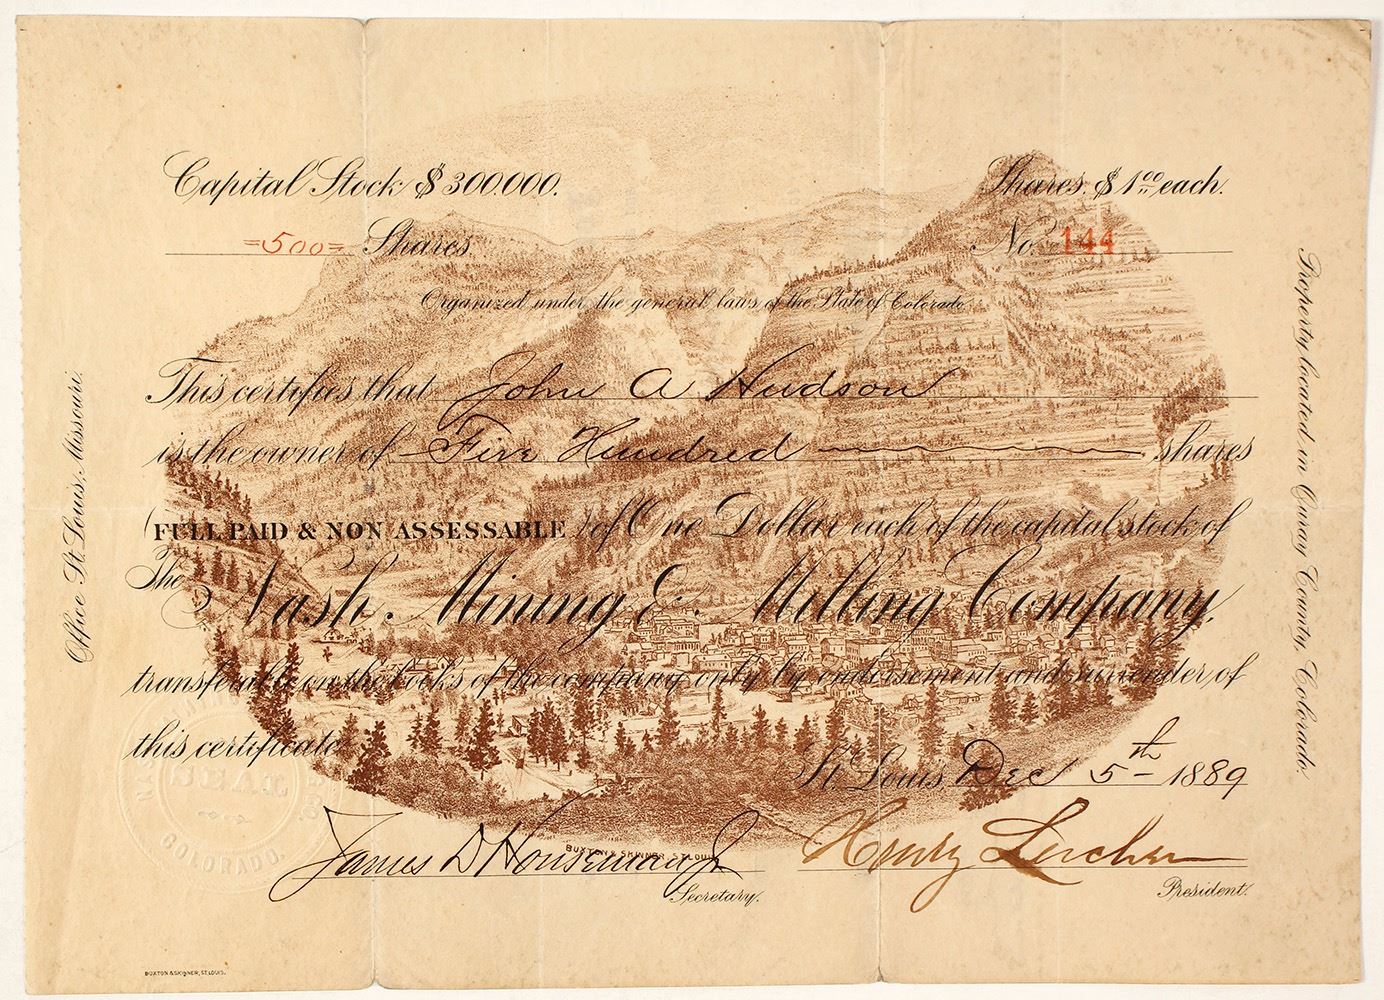 Capital Stock $300.000.
Shares, $1.00 each.
=500= Shares
No. 144
Organized under the general laws of the State of Colorado.
This certifies that John A Hudson
is the owner of Five Hundred shares
(FULL PAID & NON ASSESSABLE) of One Dollar each of the capital stock of
The Nash Mining & Milling Company,
transferable on the books of the company only by endorsement and surrender of
this certificate.
St. Louis, Dec 5th 1889
James D Houseman Jr
Secretary.
Henry Lercher
President.
BUXTON & SKINNER, ST. LOUIS
BUXTON & SKINNER, ST. LOUIS.
Office St. Louis, Missouri.
Property located in Ouray County, Colorado.
SEAL
COLORADO.